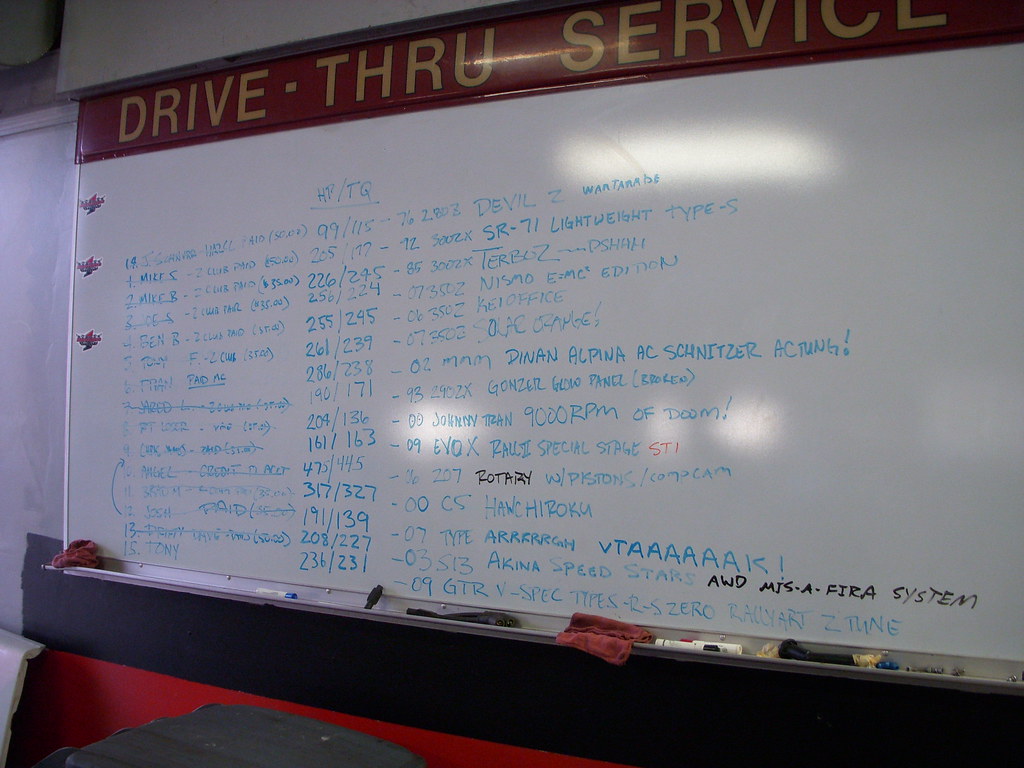 DRIVE-THRU SERVICE
HP/TQ
PAID (50.00) 99/115 - 76 280Z DEVIL Z
1. MIKE S - Z CLUB PAID (50.00) 205/177 - 92 300ZX SR-71 LIGHTWEIGHT TYPE-S
2. MIKE B - Z CLUB PAID ($35.00) 226/245 - 85 300ZX TERBOZ
3. JOE S - Z CLUB PAID ($35.00) 256/224 - 07 350Z NISMO E=MC² EDITION
4. BEN B - Z CLUB PAID (35.00) 255/245 - 06 350Z KEI OFFICE
5. TONY F. - Z CLUB (35.00) 261/239 - 07 350Z SOLAR ORANGE!
6. TRAN PAID 286/238 - 02 mmm DINAN ALPINA AC SCHNITZER ACTUNG!
190/171 - 93 240ZX GONZER GLOW PANEL (BROKEN)
8. 204/136 - 00 JOHNNY TRAN 9000RPM OF DOOM!
9. 161/163 - 09 EVO X SPECIAL STAGE STI
ANGEL - CREDIT TO ACCT 475/445 - 96 207 ROTARY W/PISTONS/COMPCAM
11. 317/327 - 00 C5 HAWCHIROKU
12. JOSH PAID 191/139 - 07 TYPE ARRRRRGH VTAAAAAAK!
13. (50.00) 208/227 - 03 S13 AKINA SPEED STARS AWD MIS-A-FIRA SYSTEM
15. TONY 236/231 - 09 GTR V-SPEC TYPES-R-S ZERO RALLYART Z TUNE